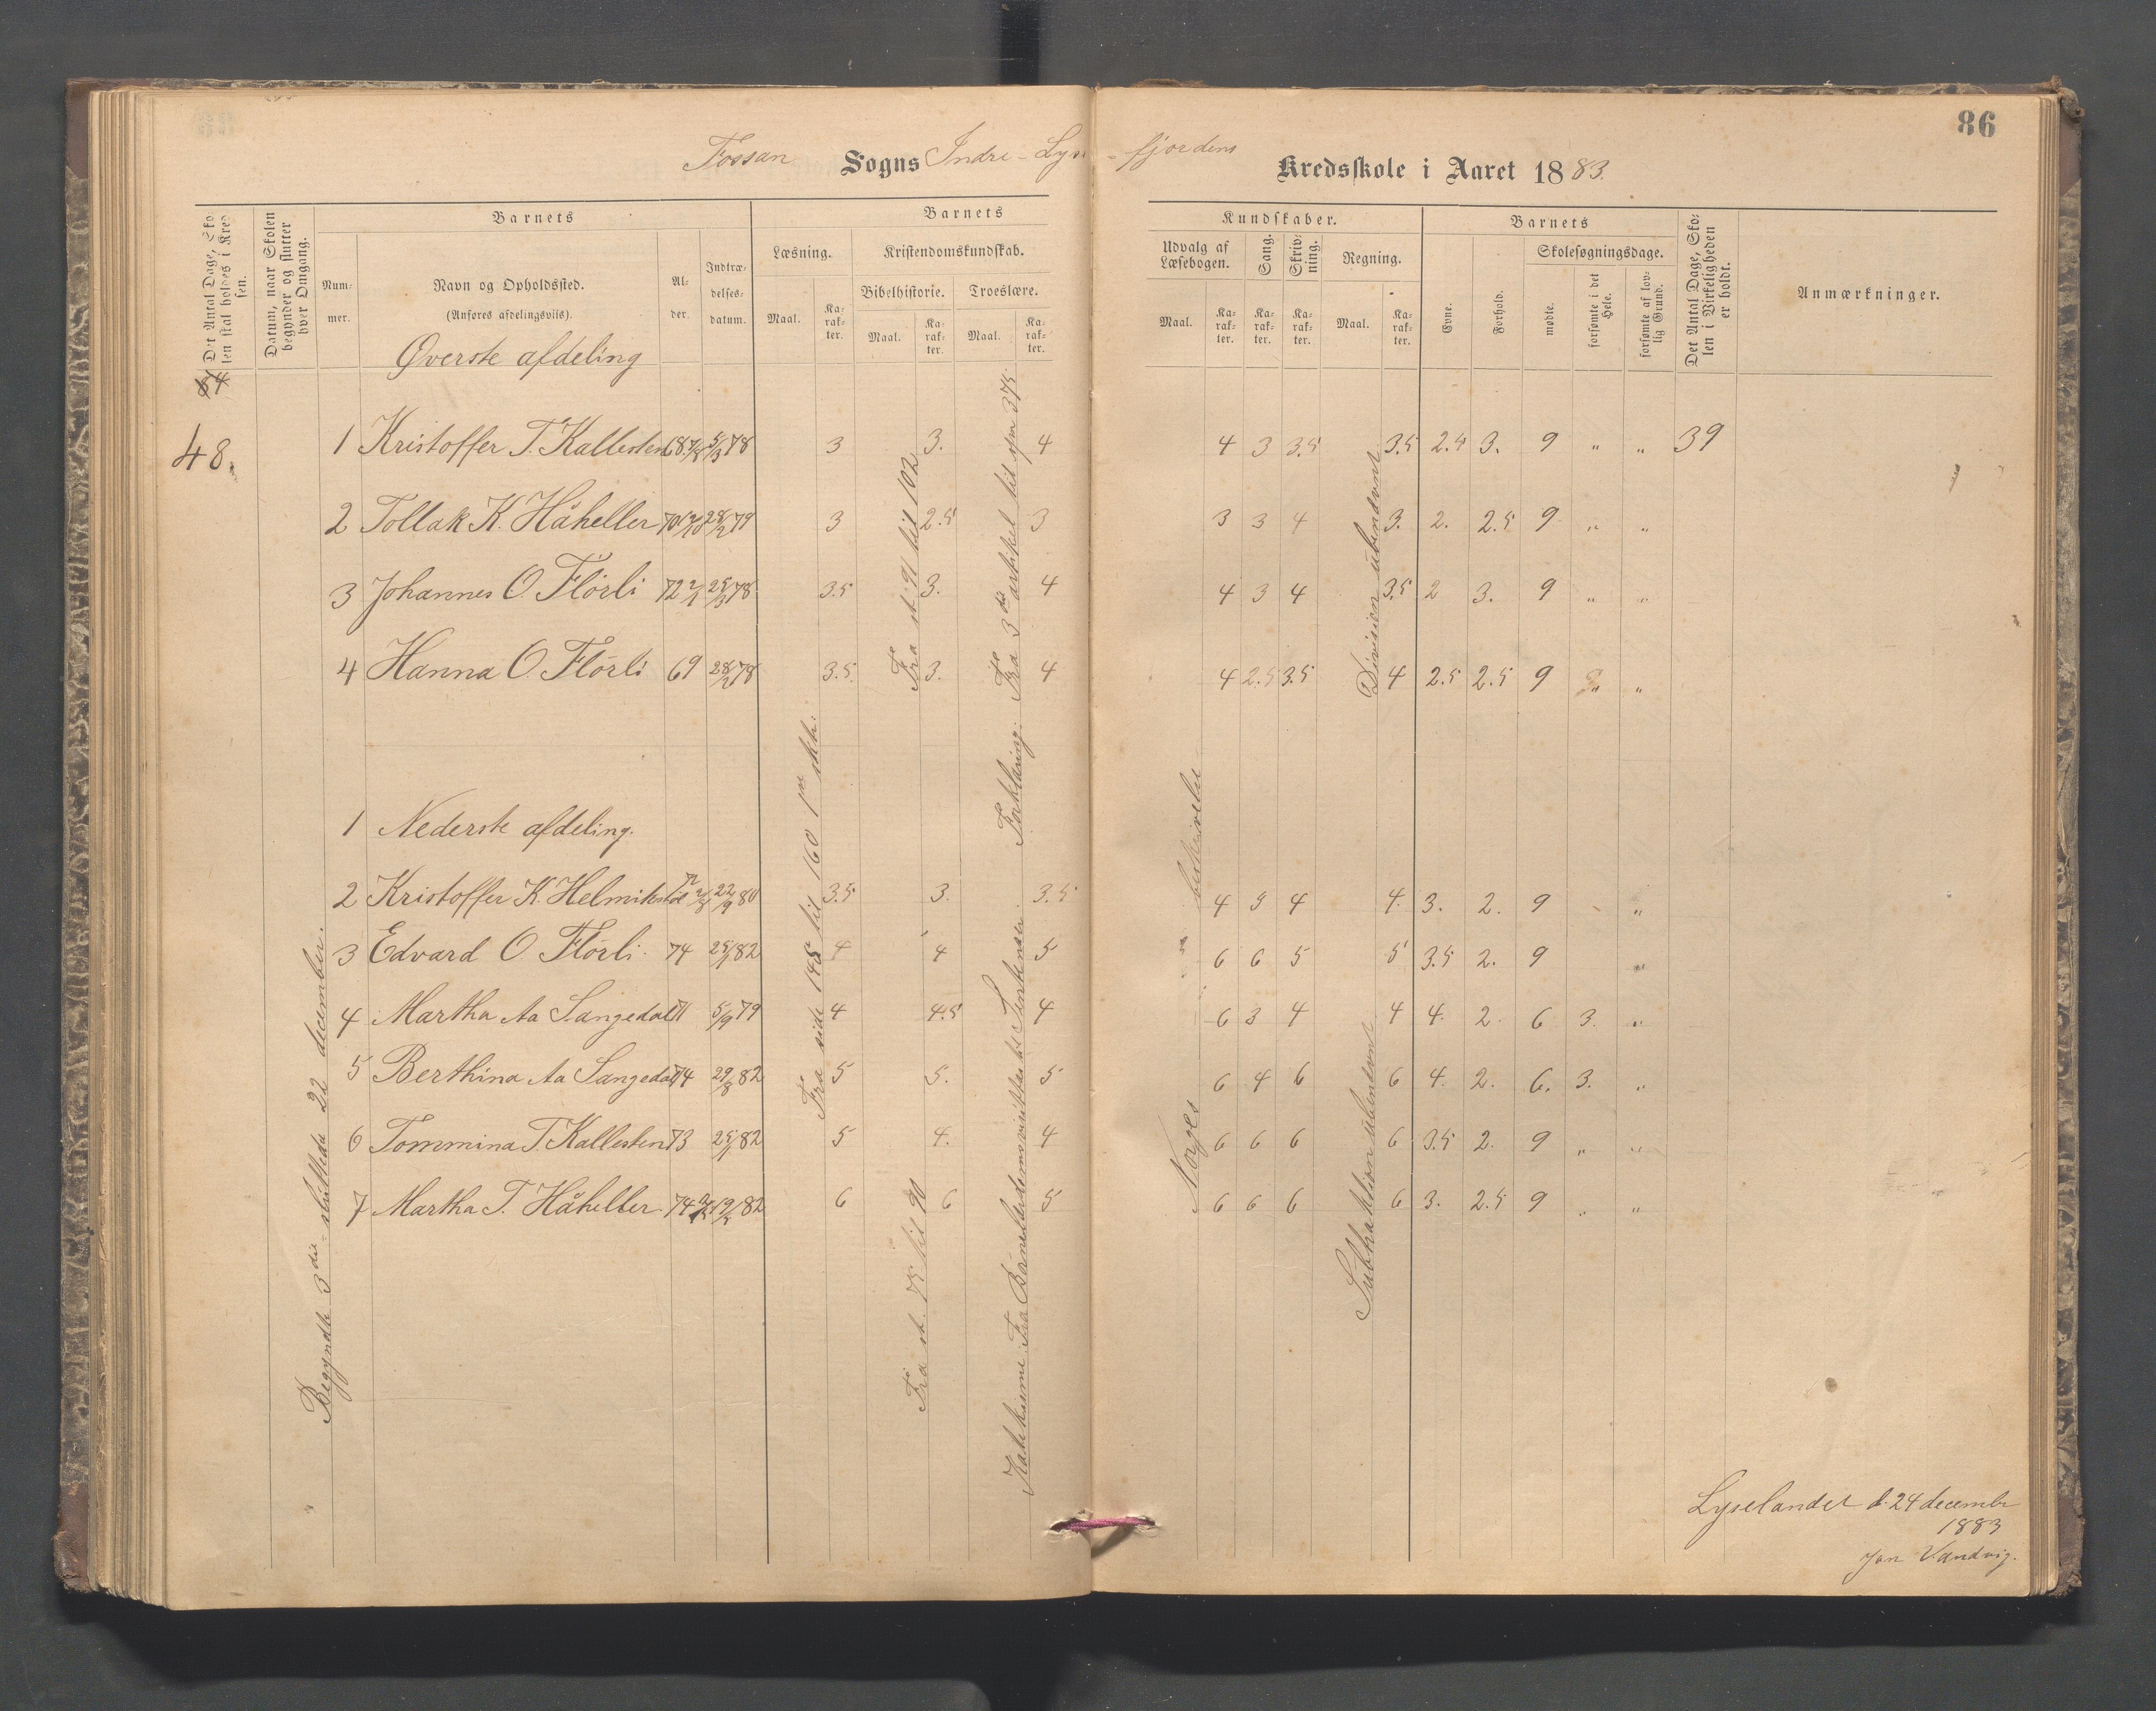 86
Fossan Sogns Indre-Lyse-fjordens Kredsskole i Aaret 1883.
Det Antal Dage, Skolen skal holdes i Kredsen.
Datum, naar Skolen begynder og slutter hver Omgang.
Barnets
Nummer.
Navn og Opholdssted.
(Anføres afdelingsviis).
Alder.
Indtrædelsesdatum.
Barnets Kundskaber.
Læsning.
Maal.
Karakter.
Kristendomskundskab.
Bibelhistorie.
Maal.
Karakter.
Troeslære.
Maal.
Karakter.
Udvalg af Læsebogen.
Maal.
Karakter.
Sang.
Karakter.
Skrivning.
Karakter.
Regning.
Maal.
Karakter.
Barnets
Evne.
Forhold.
Skolesøgningsdage.
mødte.
forsømte i det Hele.
forsømte af lovlig Grund.
Det Antal Dage, Skolen i Virkeligheden er holdt.
Anmærkninger.
Øverste afdeling
48.
1 Kristoffer T. Kallesten 68 5/3 78 3 3. 4 4 3 3.5 3.5 2.5 3. 9 „ „ 39
2 Tollak K. Håheller 70 28/2 79 3 2.5 3 3 3 4 3. 2. 2.5 9 „ „
3 Johannes O. Flörli 72 25/3 78 3.5 3. 4 4 3 4 3.5 2 3. 9 „ „
4 Hanna O. Flörli 69 28/2 78 3.5 3. 4 4 2.5 3.5 4 2.5 2.5 9 „ „
1 Nederste afdeling.
2 Kristoffer K. Helmikstøl 72 22/9 80 3.5 3. 3.5 4 5 4 4. 3. 2. 9 „
3 Edvard O Flörli 74 25/1 82 4 4 5 6 6 5 5 3.5 2. 9 „
4 Martha Aa Sangedal 71 5/9 79 4 4.5 4 6 3 4 4 4. 2. 6 3. „
5 Berthina Aa Sangedal 74 29/8 82 5 5. 5 6 4 6 6 4. 2. 6. 3. „
6 Tommina T. Kallesten 73 25/1 82 5 4. 4 6 6 6 6 3.5 2. 9 „ „
7 Martha T. Håheller 74 82 6 6 5 6 6 6 6 3. 2.5 9 „ „
Begyndte 3die - sluttede 22 december.
Fra side 145 til 160 1ste skb.
Fra st. 91 til 102
Fra st. 75 til 90
Forklaring: Fra 3die artikel til spm 375.
Norges beskrivelse
Division ubenævnt
Subtraktion ubenævnt
Lyselandet d. 24 decembr
1883
Jon Vandvig.